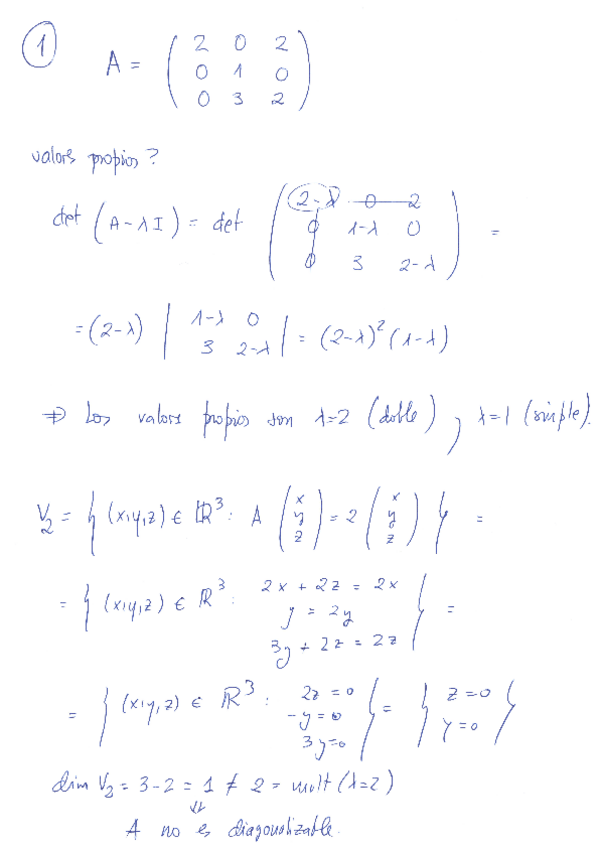 1 A = ( 2 0 2
0 1 0
0 3 2 )
valors propios?
det (A-λI) = det ( 2-λ 0 2
0 1-λ 0
0 3 2-λ ) =
= (2-λ) | 1-λ 0
3 2-λ | = (2-λ)² (1-λ)
⇒ Los valors propios son λ=2 (doble) y λ=1 (simple).
V₂ = { (x,y,z) ∈ ℝ³: A ( x y z ) = 2 ( x y z ) } =
= { (x,y,z) ∈ ℝ³: 2x + 2z = 2x
y = 2y
3y + 2z = 2z } =
= { (x,y,z) ∈ ℝ³: 2z = 0
-y = 0
3y = 0 } = { z = 0
y = 0 }
dim V₂ = 3-2 = 1 ≠ 2 = mult (λ=2)
⇓
A no es diagonalizable.